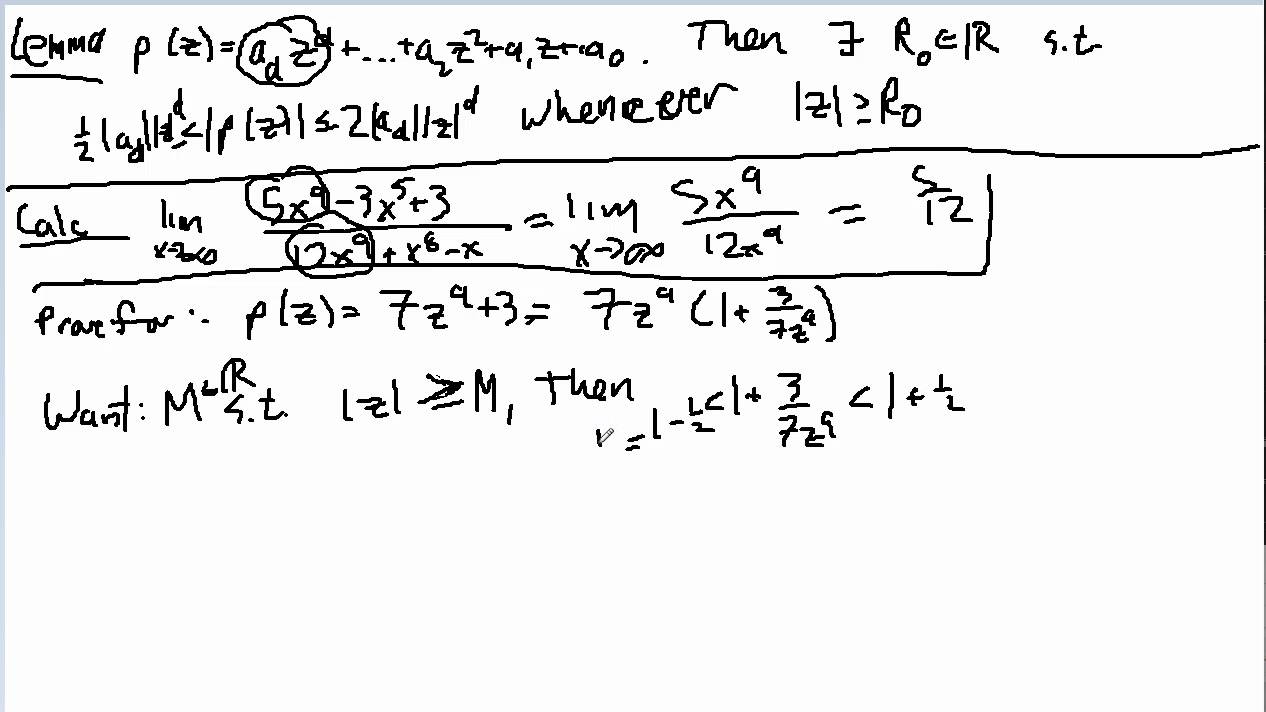 Lemma p(z) = a_d z^d + ... + a_2 z^2 + a_1 z + a_0 . Then ∃ R_0 ∈ ℝ s.t.
1/2 |a_d||z|^d ≤ |p(z)| ≤ 2|a_d||z|^d whenever |z| ≥ R_0
Calc lim x→∞ (5x^9 - 3x^5 + 3)/(12x^9 + x^8 - x) = lim x→∞ 5x^9/12x^9 = 5/12
Prove for: p(z) = 7z^9 + 3 = 7z^9 (1 + 3/7z^9)
Want: M ∈ ℝ s.t. |z| ≥ M, Then
= 1 - 1/2 < 1 + 3/7z^9 < 1 + 1/2